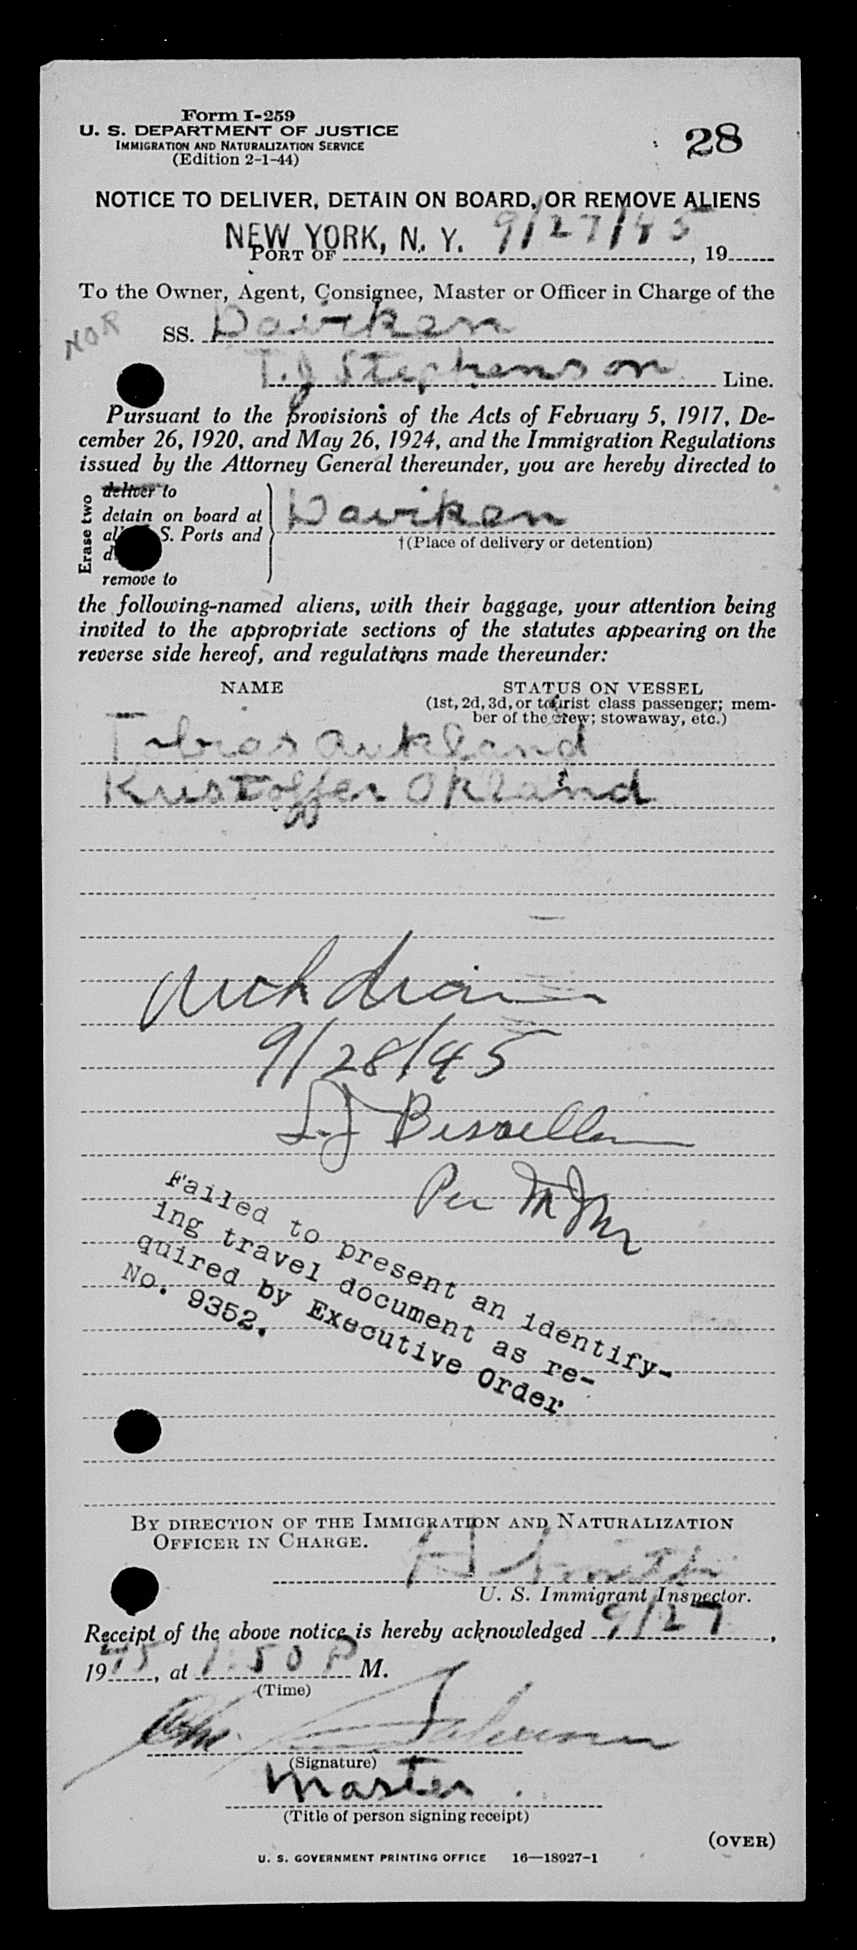 Form I-259
U. S. DEPARTMENT OF JUSTICE
IMMIGRATION AND NATURALIZATION SERVICE
(Edition 2-1-44)
28
NOTICE TO DELIVER, DETAIN ON BOARD, OR REMOVE ALIENS
NEW YORK, N. Y. 9/27/45
PORT OF , 19
To the Owner, Agent, Consignee, Master or Officer in Charge of the
NOR SS. Daviken
T. J Stephenson Line.
Pursuant to the provisions of the Acts of February 5, 1917, De-
cember 26, 1920, and May 26, 1924, and the Immigration Regulations
issued by the Attorney General thereunder, you are hereby directed to
Erase two
deliver to
detain on board at
al S. Ports and
d
remove to
Daviken
†(Place of delivery or detention)
the following-named aliens, with their baggage, your attention being
invited to the appropriate sections of the statutes appearing on the
reverse side hereof, and regulations made thereunder:
NAME STATUS ON VESSEL
(1st, 2d, 3d, or tourist class passenger; mem-
ber of the crew; stowaway, etc.)
Tobias Aukland
Kristoffer Okland
9/28/45
Per
Failed to present an identify-
ing travel document as re-
quired by Executive Order
No. 9352.
BY DIRECTION OF THE IMMIGRATION AND NATURALIZATION
OFFICER IN CHARGE.
H Smith
U. S. Immigrant Inspector.
Receipt of the above notice is hereby acknowledged 9/27,
1945, at 1:50 P M.
(Time)
(Signature)
Master
(Title of person signing receipt)
(OVER)
U. S. GOVERNMENT PRINTING OFFICE 16—18927-1